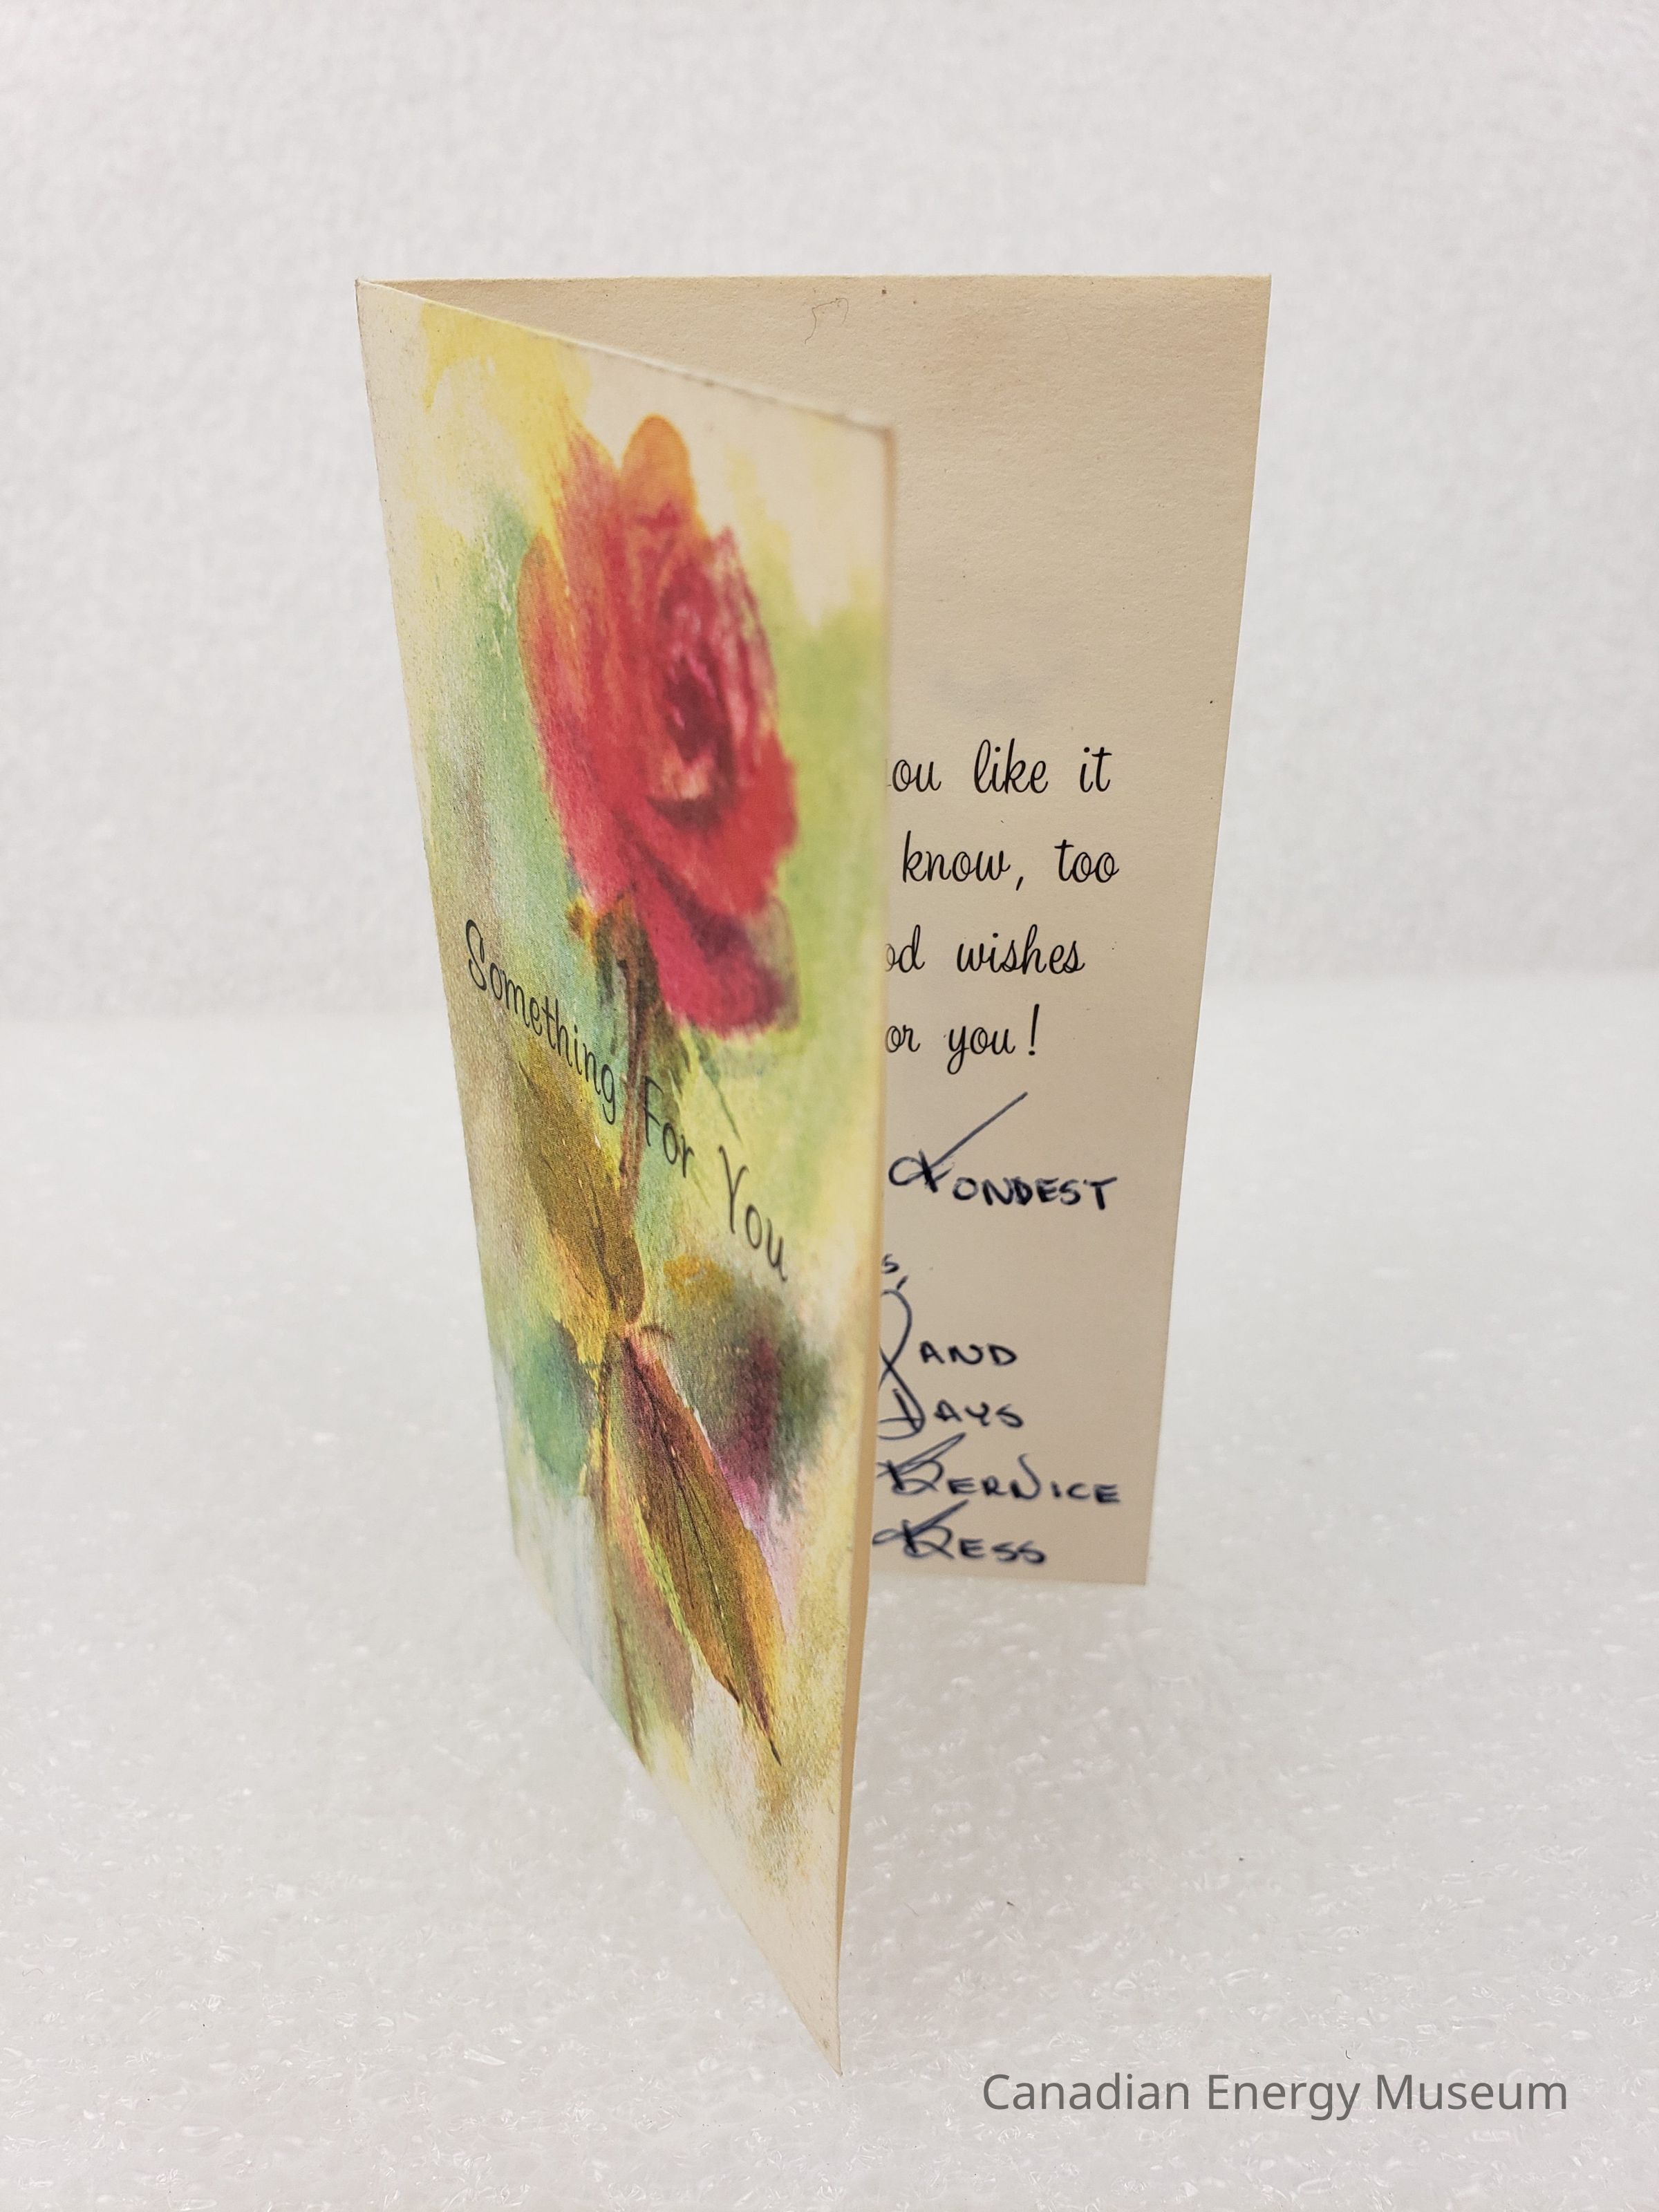 Something For You
ou like it
know, too
od wishes
or you!
FONDEST
s,
AND
DAYS
BERNICE
BESS
Canadian Energy Museum